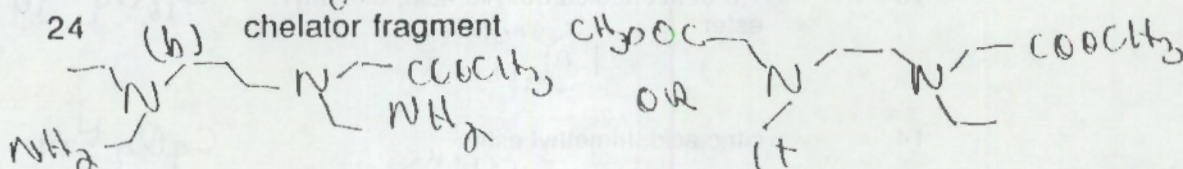 24 (b) chelator fragment CH3OOC COOCH3
N N COOCH3 N N
NH2 NH2 OR